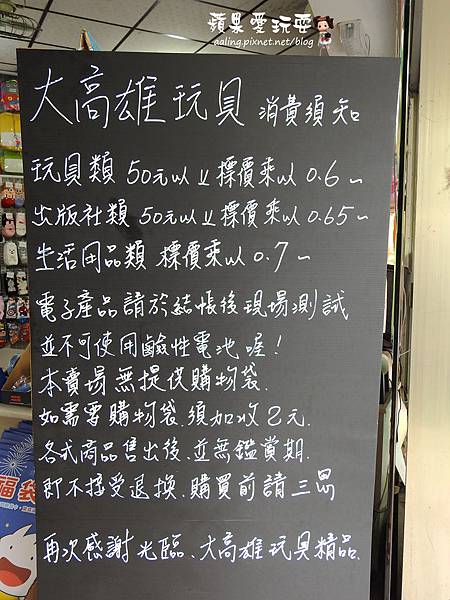 蘋果愛玩耍
aaling.pixnet.net/blog
大高雄玩具 消費須知
玩具類 50元以上標價乘以 0.6～
出版社類 50元以上標價乘以 0.65～
生活用品類 標價乘以 0.7～
電子產品請於結帳後現場測試
並不可使用鹼性電池喔!
本賣場無提供購物袋.
如需要購物袋.須加收2元.
各式商品售出後.並無鑑賞期.
即不接受退換.購買前請三思
再次感謝光臨、大高雄玩具精品.
福袋